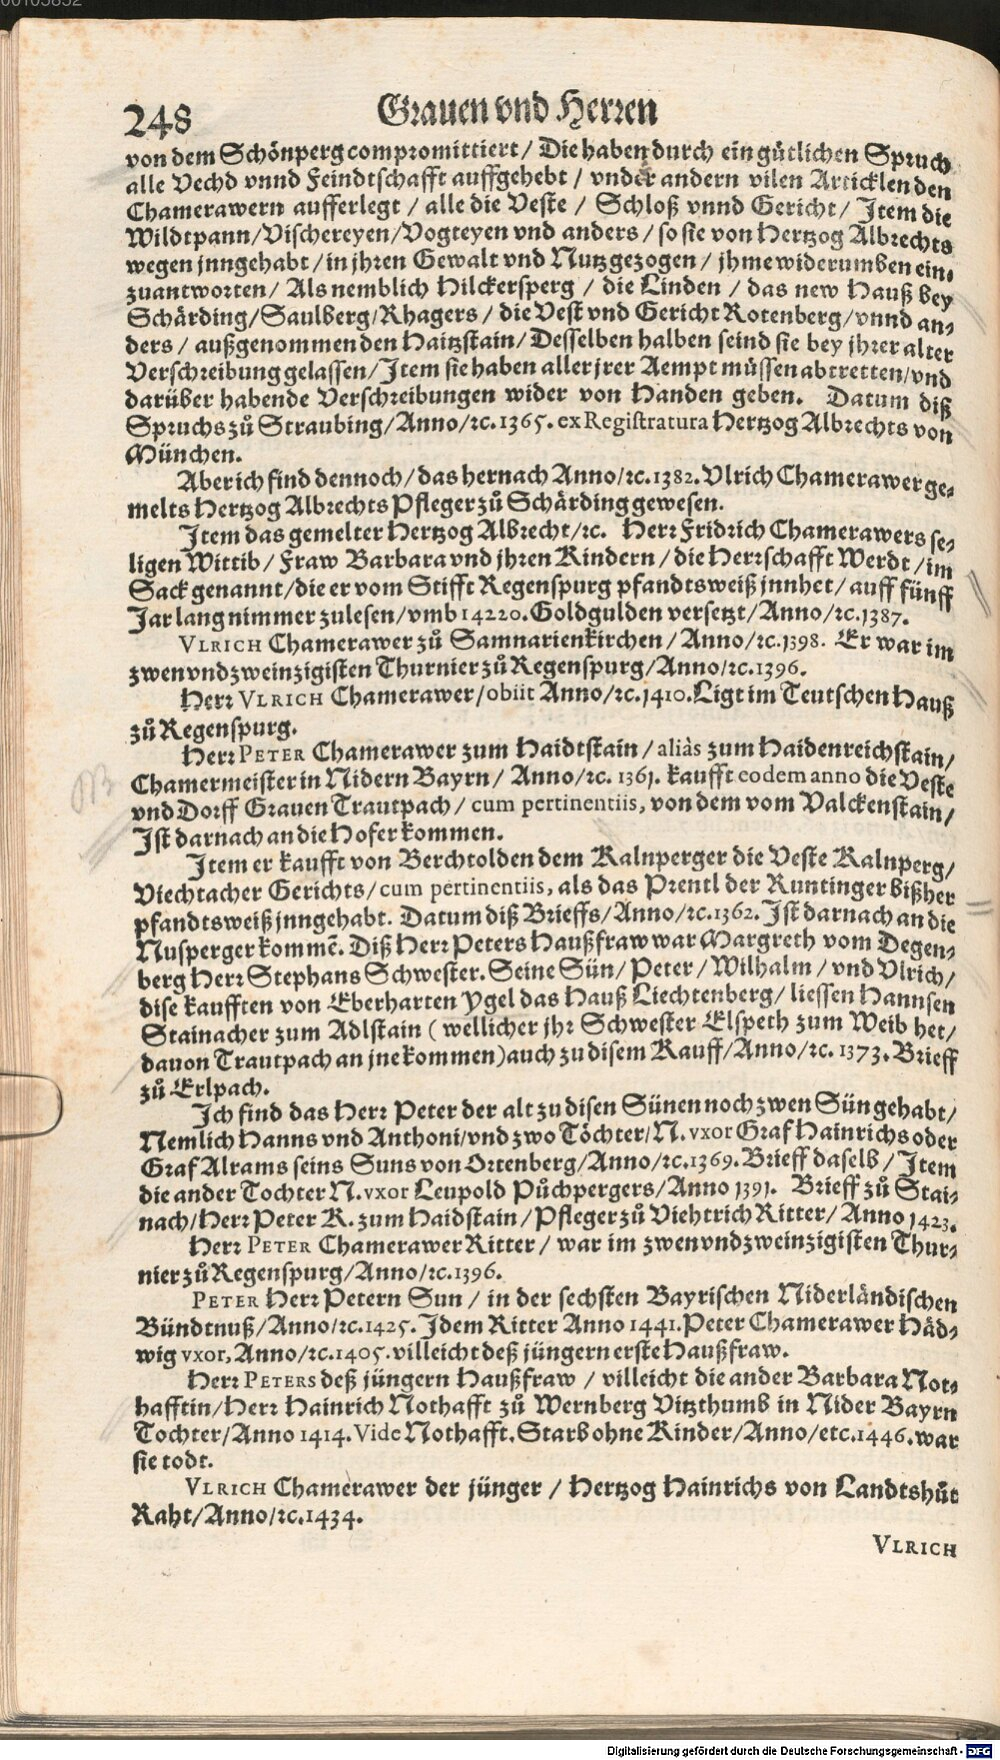 00103832
248 Grauen vnd Herren
von dem Schönperg compromittiert / Die haben durch ein gütlichen Spruch
alle Vechd vnnd Feindtschafft auffgehebt / vnder andern vilen Articklen den
Chamerawern aufferlegt / alle die Veste / Schloß vnnd Gericht / Item die
Wildtpann/Vischereyen/Vogteyen vnd anders / so sie von Hertzog Albrechts
wegen jnngehabt / in jhren Gewalt vnd Nutz gezogen / jhme widerumben ein⸗
zuantworten / Als nemblich Hilckersperg / die Linden / das new Hauß bey
Schärding/Saulberg/Rhagers / die Vest vnd Gericht Rotenberg/vnnd an⸗
ders / außgenommen den Haitzstain/ Desselben halben seind sie bey jhrer alter
Verschreibung gelassen/Item sie haben aller jrer Aempt müssen abtretten/vnd
darüber habende Verschreibungen wider von Handen geben. Datum diß
Spruchs zů Straubing/Anno/ꝛc.1365. ex Registratura Hertzog Albrechts von
München.
Aber ich find dennoch/das hernach Anno/ꝛc.1382. Vlrich Chamerawer ge⸗
melts Hertzog Albrechts Pfleger zů Schärding gewesen.
Item das gemelter Hertzog Albrecht/ꝛc. Herr Fridrich Chamerawers se⸗
ligen Wittib / Fraw Barbara vnd jhren Kindern / die Herrschafft Werdt / im
Sack genannt/die er vom Stifft Regenspurg pfandtsweiß jnnhet / auff fünff
Jar lang nimmer zulesen/vmb 14220. Goldgulden versetzt/Anno/ꝛc.1387.
VLRICH Chamerawer zů Samnarienkirchen / Anno/ꝛc.1398. Er war im
zwenvndzweinzigisten Thurnier zů Regenspurg/Anno/ꝛc.1396.
Herr VLRICH Chamerawer/obiit Anno/ꝛc.1410. Ligt im Teutschen Hauß
zů Regenspurg.
Herr PETER Chamerawer zum Haidtstain / aliàs zum Haidenreichstain/
Chamermeister in Nidern Bayrn / Anno/ꝛc. 1361. kaufft eodem anno die Veste
vnd Dorff Grauen Trautpach / cum pertinentiis, von dem vom Valckenstain/
Ist darnach an die Hofer kommen.
Item er kaufft von Berchtolden dem Kalnperger die Veste Kalnperg/
Viechtacher Gerichts/cum pertinentiis, als das Prentl der Runtinger bißher
pfandtsweiß jnngehabt. Datum diß Brieffs/Anno/ꝛc.1362. Ist darnach an die
Nusperger kommẽ. Diß Herr Peters Haußfraw war Margreth vom Degen⸗
berg Herr Stephans Schwester. Seine Sün/ Peter / Wilhalm / vnd Vlrich/
dise kaufften von Eberharten Ygel das Hauß Liechtenberg/ liessen Hannsen
Stainacher zum Adlstain (wellicher jhr Schwester Elspeth zum Weib het/
dauon Trautpach an jne kommen) auch zu disem Kauff/Anno/ꝛc. 1373. Brieff
zů Erlpach.
Ich find das Herr Peter der alt zu disen Sünen noch zwen Sün gehabt/
Nemlich Hanns vnd Anthoni/vnd zwo Töchter/N. vxor Graf Hainrichs oder
Graf Alrams seins Suns von Ortenberg/Anno/ꝛc.1369. Brieff daselb / Item
die ander Tochter N. vxor Leupold Půchpergers/Anno 1391. Brieff zů Stai⸗
nach/Herr Peter R. zum Haidstain / Pfleger zů Viehtrich Ritter/ Anno 1423.
Herr PETER Chamerawer Ritter / war im zwenvndzweinzigisten Thur⸗
nier zů Regenspurg/Anno/ꝛc.1396.
PETER Herr Petern Sun / in der sechsten Bayrischen Niderländischen
Bündtnuß/Anno/ꝛc.1425. Idem Ritter Anno 1441. Peter Chamerawer Häd⸗
wig vxor, Anno/ꝛc.1405. villeicht deß jüngern erste Haußfraw.
Herr PETERS deß jüngern Haußfraw / villeicht die ander Barbara Not⸗
hafftin/Herr Hainrich Nothafft zů Wernberg Vitzthumb in Nider Bayrn
Tochter/Anno 1414. Vide Nothafft. Starb ohne Kinder/Anno/etc.1446. war
sie todt.
VLRICH Chamerawer der jünger / Hertzog Hainrichs von Landtshůt
Raht/Anno/ꝛc.1434.
VLRICH
Digitalisierung gefördert durch die Deutsche Forschungsgemeinschaft - DFG